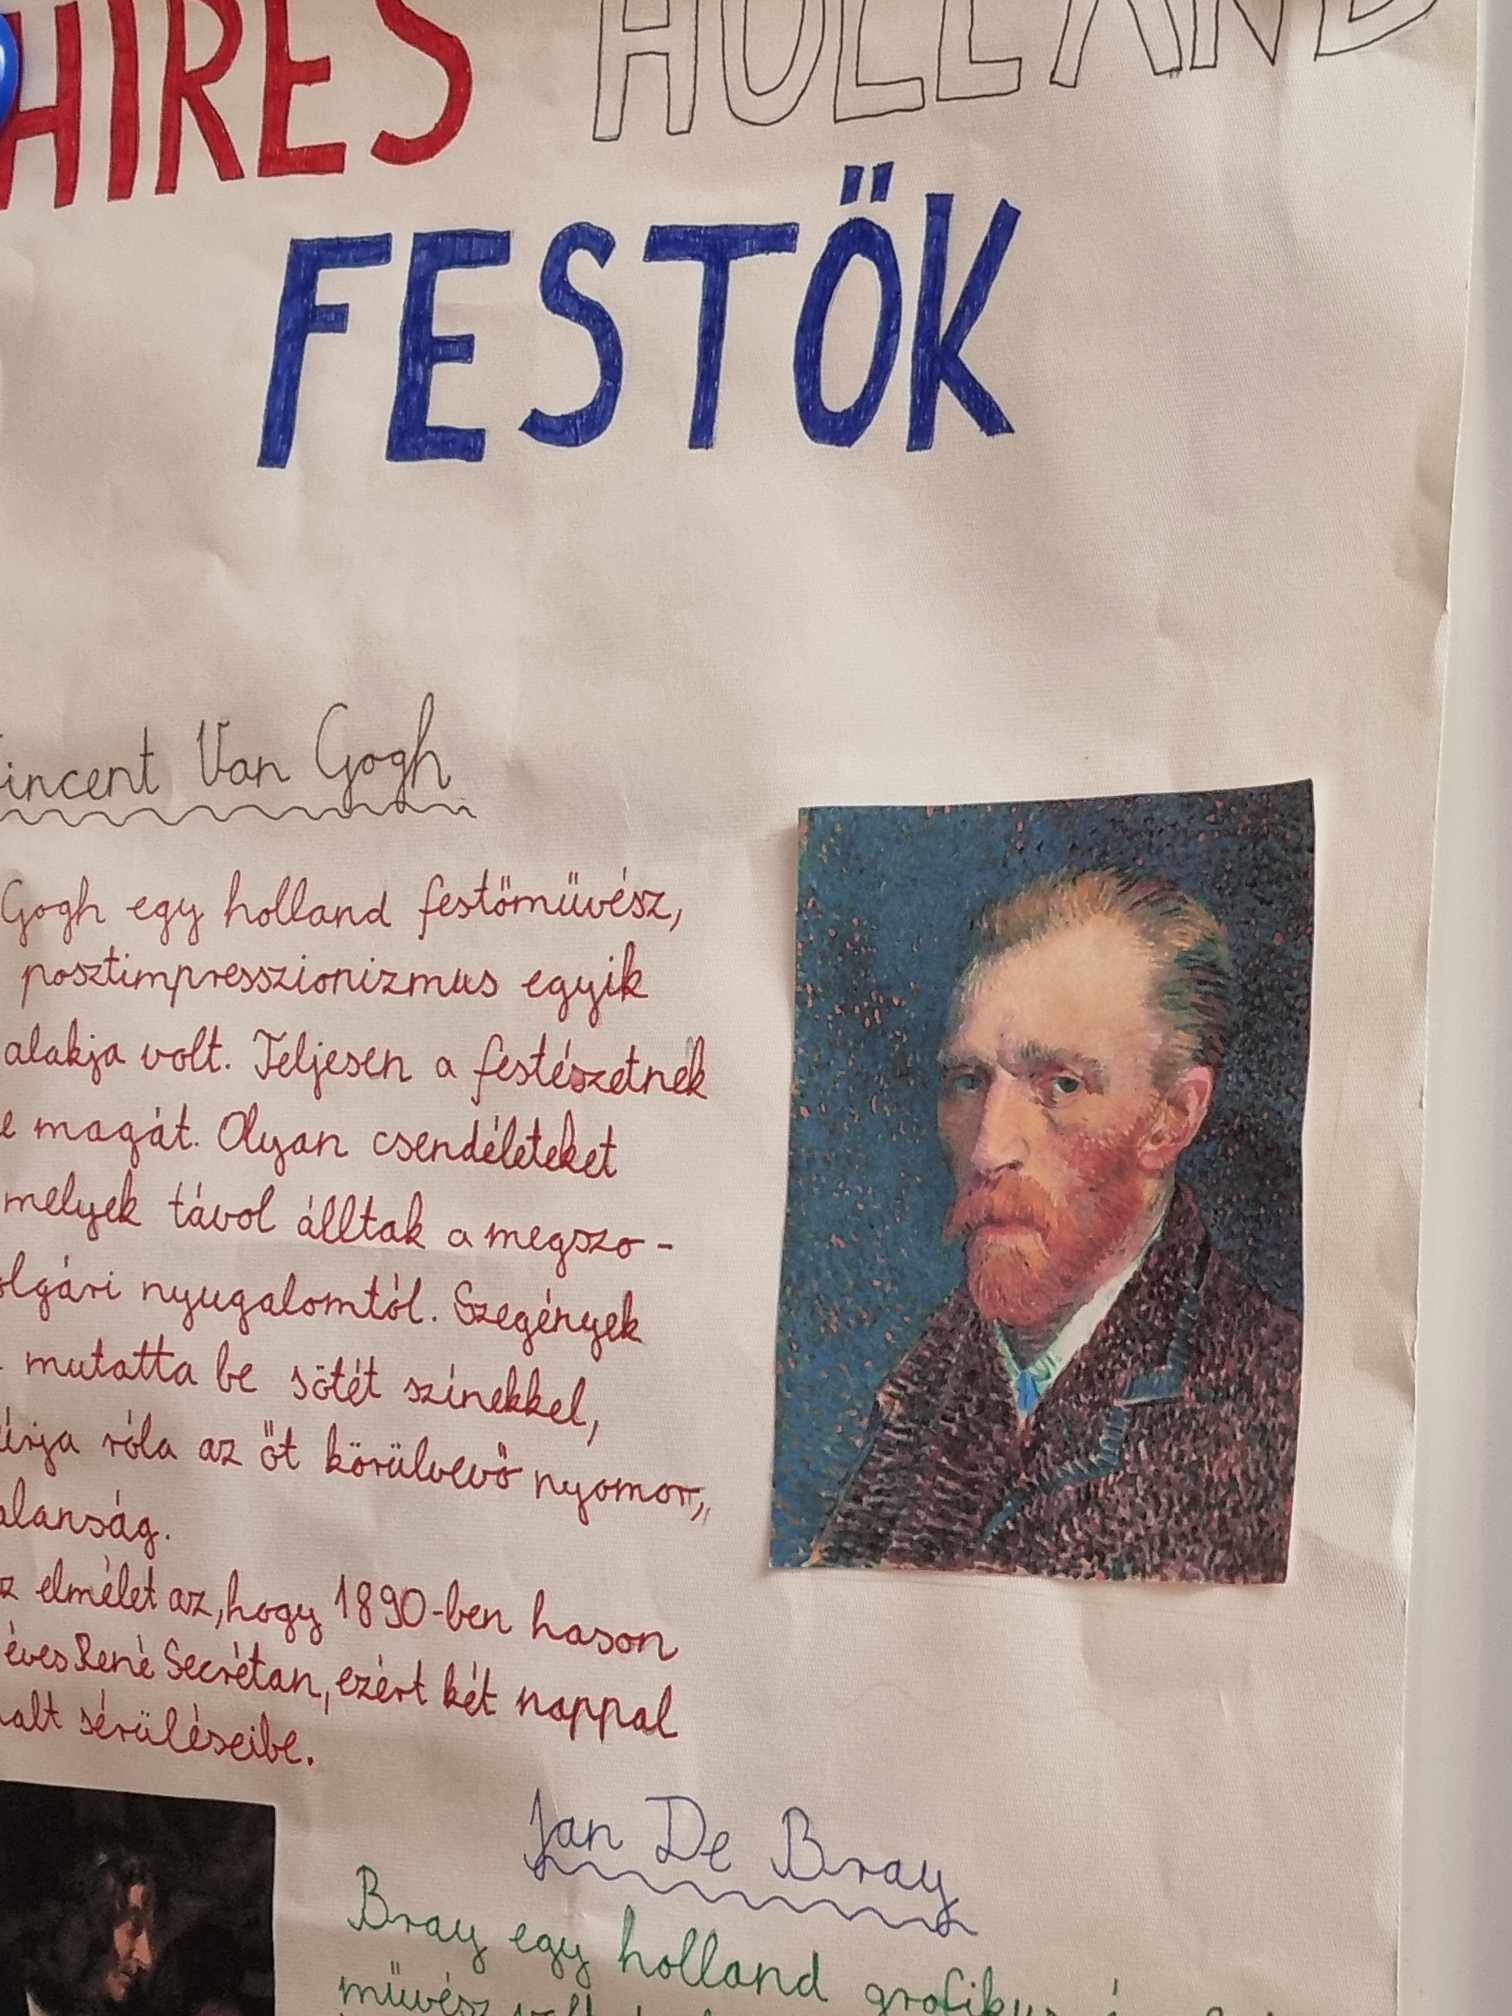 HIRES HOLLAND
FESTŐK
Vincent Van Gogh
Gogh egy holland festőművész,
posztimpresszionizmus egyik
alakja volt. Teljesen a festészetnek
magát. Olyan csendéleteket
melyek távol álltak a megszo-
nyugalomtól. Szegények
mutatta be sötét színekkel,
róla az őt körülvevő nyomor,
elmélet az, hogy 1890-ben hason
éves René Secrétan, ezért két nappal
sérüléseibe.
Jan De Bray
Bray egy holland grafikus
művész volt